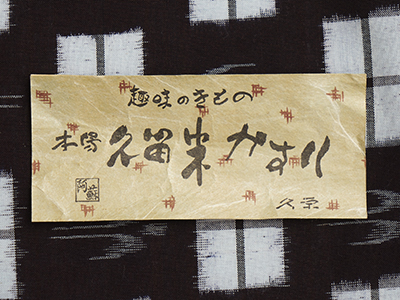 趣味のきもの
本場 久留米かすり
久栄